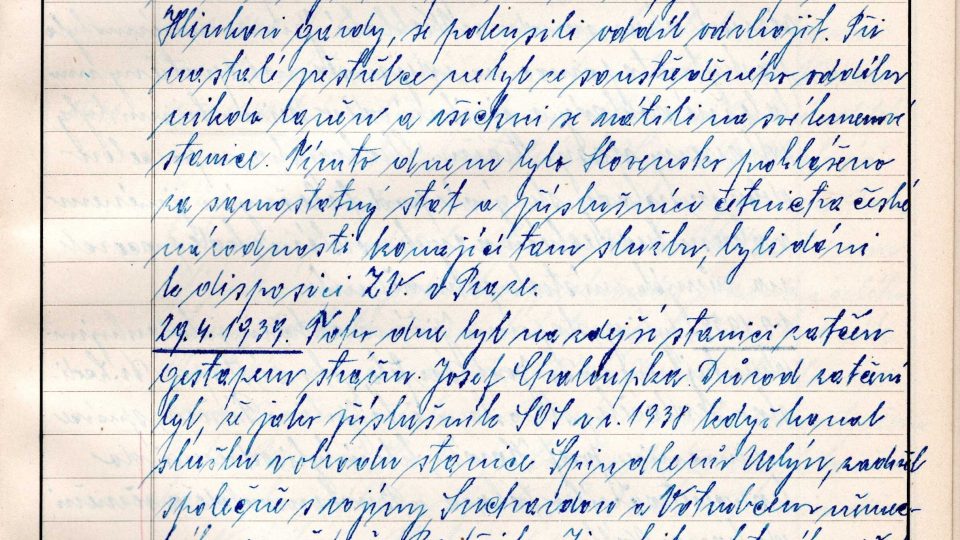 Hlinkovi gardy, se pokusili oddíl odzbrojit. Při
nastalé přestřelce nebyl ze soustředěného oddílu
nikdo raněn a všichni se vrátili na své kmenové
stanice. Tímto dnem bylo Slovensko prohlášeno
za samostatný stát a příslušníci četnictva české
národnosti konající tam službu, byli dáni
k disposici ZV. v Praze.
29.4.1939. Toho dne byl na zdejší stanici zatčen
gestapem strážm. Josef Chaloupka. Důvod zatčení
byl, že jako příslušník SOS v r. 1938 když konal
službu v obvodu stanice Špindlerův Mlýn, zadržel
společně s vojíny Suchardou a Votrubcem němec-